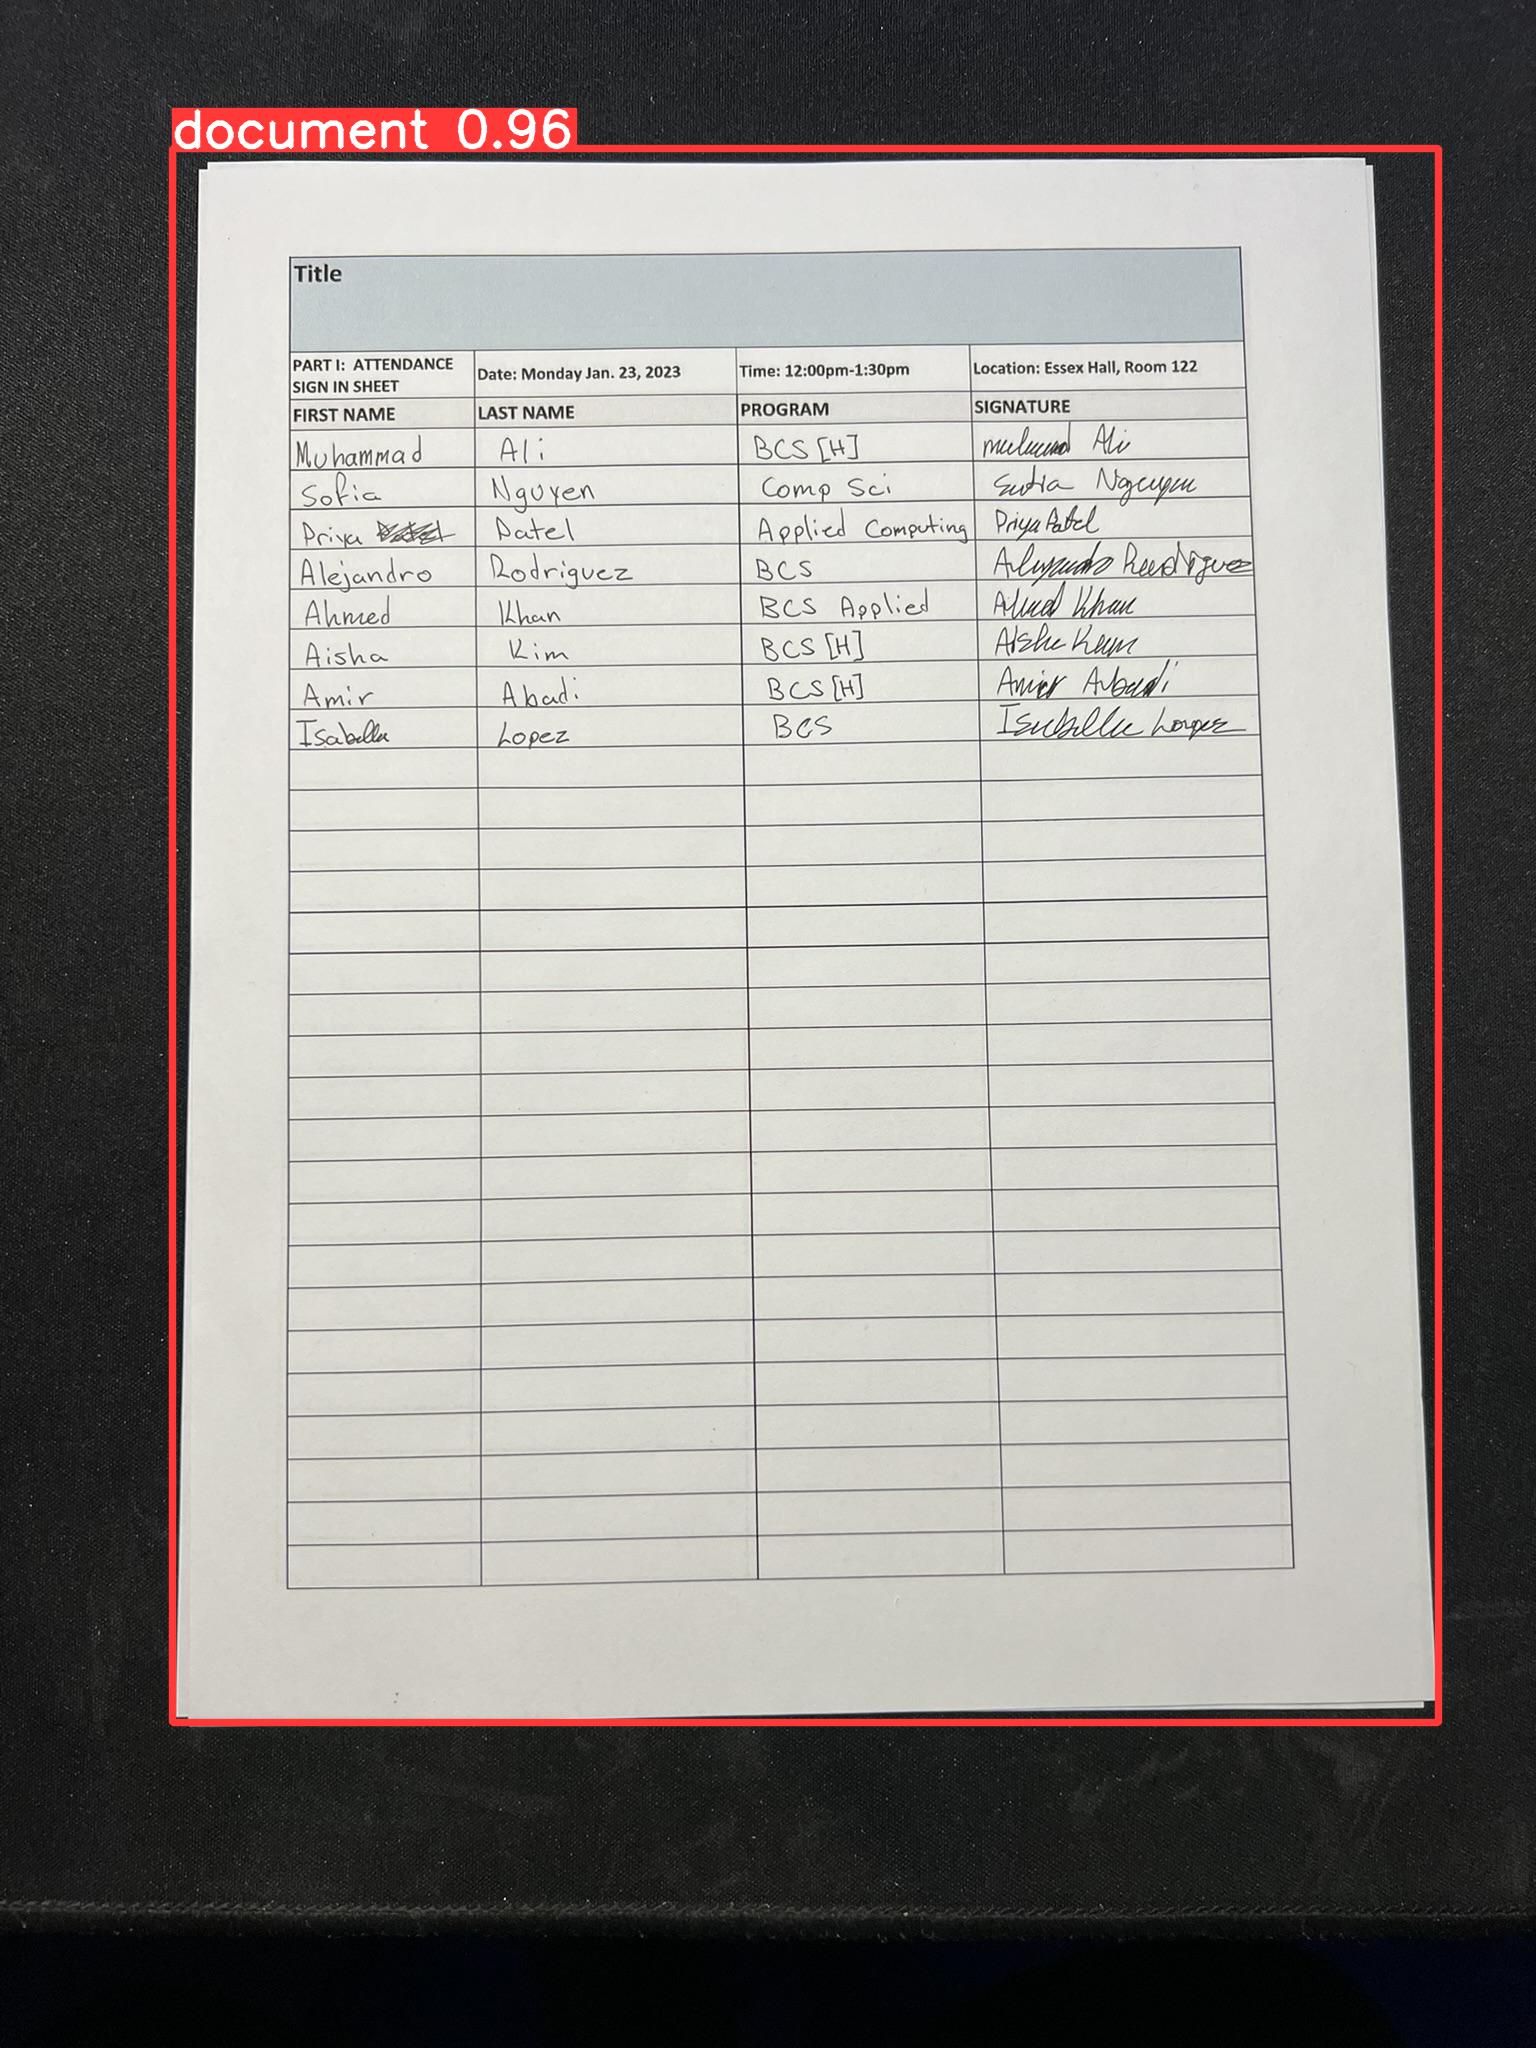 document 0.96
Title
PART I: ATTENDANCE SIGN IN SHEET Date: Monday Jan. 23, 2023 Time: 12:00pm-1:30pm Location: Essex Hall, Room 122
FIRST NAME LAST NAME PROGRAM SIGNATURE
Muhammad Ali BCS [H] Ali
Sofia Nguyen Comp Sci Sofia Nguyen
Priya Patel Applied Computing Priya Patel
Alejandro Rodriguez BCS Alejandro Rodriguez
Ahmed Khan BCS Applied Ahmed Khan
Aisha Kim BCS [H] Aisha Kim
Amir Abadi BCS [H] Amir Abadi
Isabella Lopez BCS Isabella Lopez